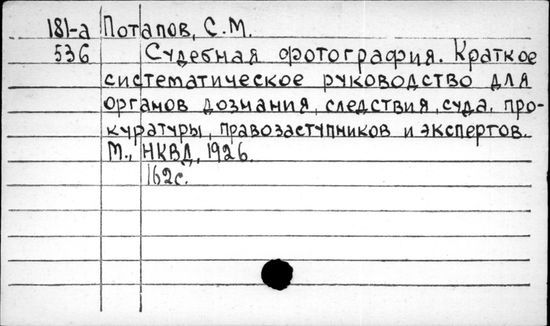 181-а Потапов, С.М.
536 Судебная фотография. Краткое
систематическое руководство для
органов дознания, следствия, суда, про-
куратуры, правозаступников и экспертов.
М., НКВД, 1926.
162с.